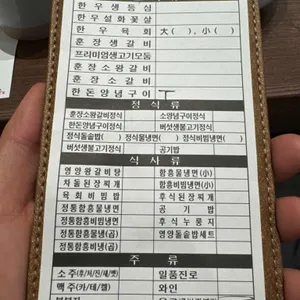 한우생등심
한우설화꽃살
한우육회 大( ), 小( )
훈장생갈비
프리미엄생고기모둠
훈장소왕갈비
훈장소갈비
한돈양념구이
정식류
훈장소왕갈비정식 소양념구이정식
한돈양념구이정식 버섯생불고기정식
정식돌솥밥( ) 정식물냉면( ) 정식비빔냉면( )
버섯생불고기정식 공기밥
식사류
영양왕갈비탕 함흥물냉면(小)
차돌된장찌개 함흥비빔냉면(小)
육회비빔밥 후식된장찌개
정통함흥물냉면 공기밥
정통함흥비빔냉면 후식누룽지
정통함흥물냉(곱) 영양돌솥밥세트
정통함흥비냉(곱)
주류
소주(후/처/진/새/켓) 일품진로
맥주(카/테/켈) 와인